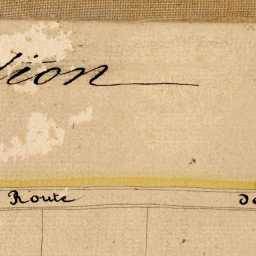 tion
Route
de